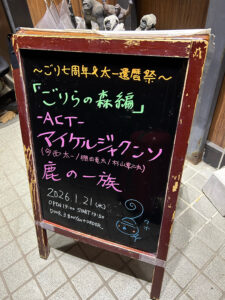 ～ごり七周年&太一還暦祭～
「ごりらの森編」
-ACT-
マイケルジャクンソ
(今西太一/棚田竜太/杉山章二丸)
鹿の一族
2026.1.21(水)
OPEN 19:00 START 19:30